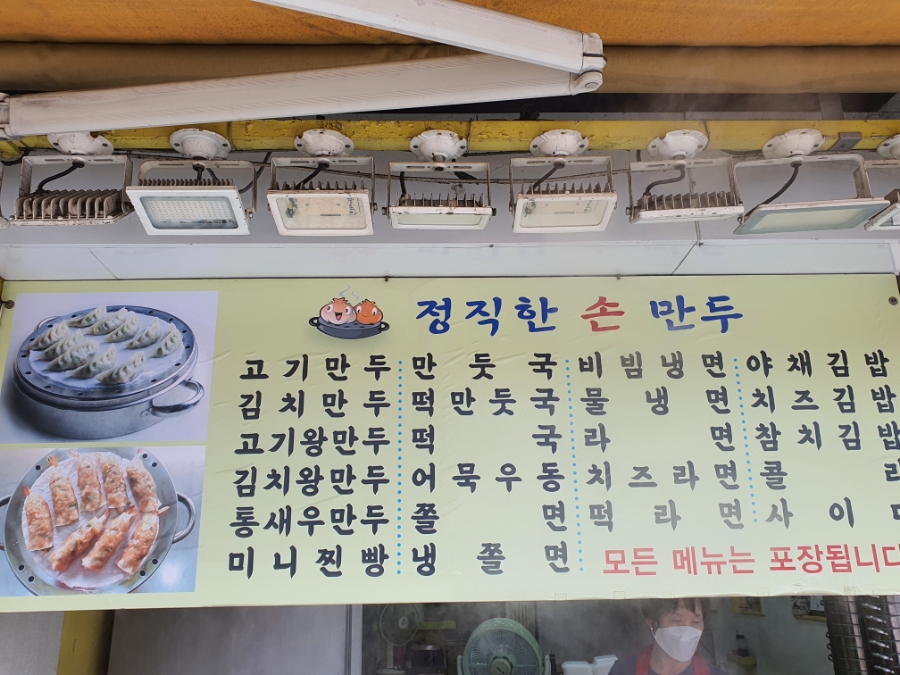 정직한 손 만두
고기만두 만둣국 비빔냉면 야채김밥
김치만두 떡만둣국 물냉면 치즈김밥
고기왕만두 떡국 라면 참치김밥
김치왕만두 어묵우동 치즈라면 콜라
통새우만두 쫄면 떡라면 사이
미니찐빵 냉쫄면
모든 메뉴는 포장됩니다